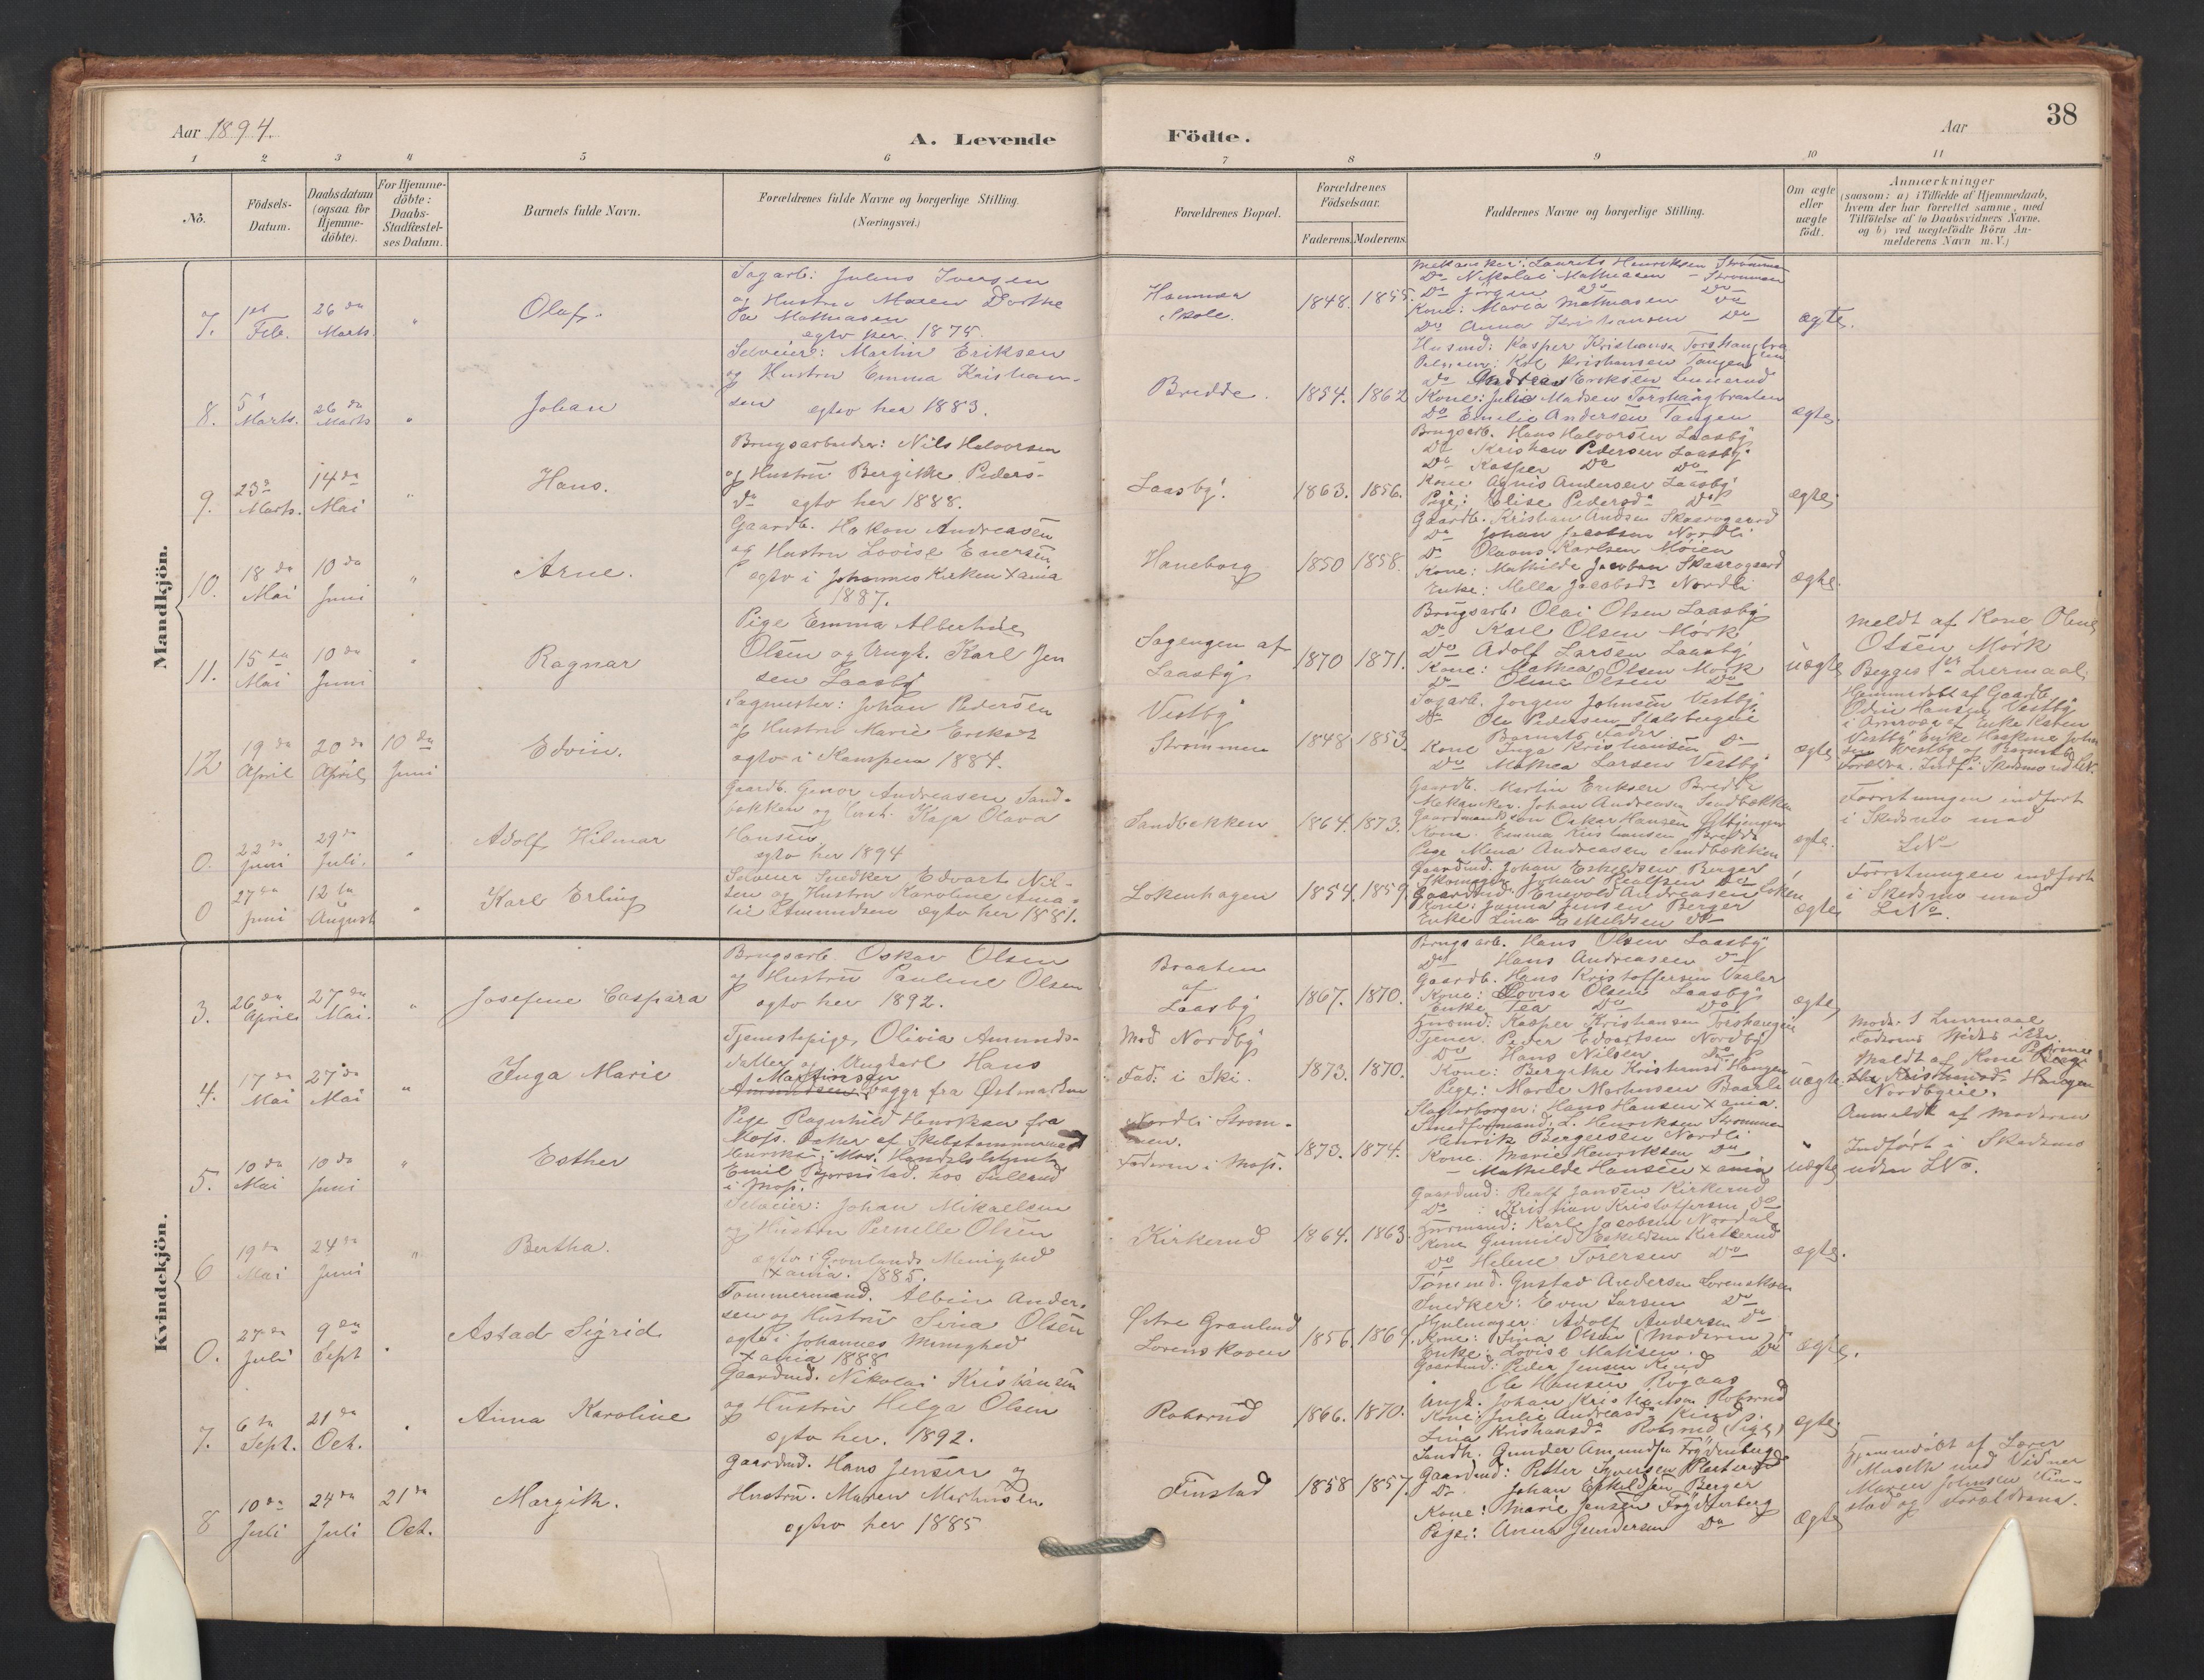 38
Aar 1894.
A. Levende
Födte.
Aar
1 2 3 4 5 6 7 8 9 10 11
No.
Födsels-
Datum.
Daabsdatum
(ogsaa for
Hjemme-
döbte).
For Hjemme-
döbte:
Daabs-
Stadfæstel-
ses Datum.
Barnets fulde Navn.
Forældrenes fulde Navne og borgerlige Stilling.
(Næringsvei.)
Forældrenes Bopæl.
Forældrenes
Födselsaar.
Faderens. Moderens.
Faddernes Navne og borgerlige Stilling.
Om ægte
eller
uægte
födt.
Anmærkninger
(saasom: a) i Tilfælde af Hjemmedaab,
hvem der har forrettet samme, med
Tilföielse af to Daabsvidners Navne,
og b) ved uægtefödte Börn An-
melderens Navn m. V.)
Mandkjön.
7.
1st
Feb.
26de
Marts.
"
Olaf.
Sagarb: Julius Iversen
og Hustru Maren Dorthe
Mathiasen
egtv her 1875.
Skole.
1848. 1855.
Mekaniker: Laurits Henriksen Strömmen
Do Nikolai Mathiasen - Strömmen
Do Jörgen Do Do
Kone: Maria Mathiasen Do
Do Anna Kristiansen Do
ægte.
8.
5t
Marts.
26de
Marts
"
Johan
Selveier: Martin Eriksen
og Hustru Emma Kristian-
sen egtv her 1883.
Bredde.
1854. 1862
Husmd: Kasper Kristiansen
Kristiansen Tangen
Do Andreas Eriksen
Kone: Julie Madsen Torshaugbraaten
Do Emilie Andersen Tangen
ægte.
9.
23de
Marts.
14de
Mai
"
Hans.
Brugsarbeider: Nils Halvorsen
og Hustru Bergitte Peders-
Do egtv her 1888.
Laasby.
1863. 1856.
Brugsarb. Hans Halvorsen Laasby
Do Kristian Pedersen Laasby.
Do Kasper Do Do
Kone Agnis Andersen Laasby
Pige: Elise Pedersd. Do
ægte
10.
18de
Mai
10de
Juni
"
Arne.
Gaardb. Hakon Andreasen
og Hustru Lovise Enersen
egtv i Johannes Kirken Xania
1887.
Haneborg
1850 1858.
Gaardb. Kristian Andsen Skarrogaard
Do Johan Jacobsen Nordli
Do Olaves Karlsen Moien
Kone: Mathilde Jacobsen Skarrogaard
Enke: Mella Jacobsd. Nordli
ægte.
11.
15de
Mai
10de
Juni
"
Ragnar
Pige Emma Albertine
Olsen og Ungk. Karl Jen
sen Laasby
Sagengen af
Laasby
1870 1871.
Brugsarb: Olai Olsen Laasby
Do Karl Olsen Mörk
Do Adolf Larsen Laasby
Kone: Mathea Olsen Mörk
Do Oline Olsen Do
uægte
Meldt af Kone Oline
Olsen Mörk
Begges 1ste Leiermaal.
12
19de
April
20de
April
10de
Juni
Edvin.
Sagmester: Johan Pedersen
og Hustru Marie
egtv i 1884.
Vestby
Strömmen
1848 1853.
Sagarb. Jorgen Johnsen Vestby
Do Ole Pedersen Stalsbergeie
Barnets Fader
Kone Inga Kristiansen Do
Do Mathea Larsen Vestby
ægte
Hjemmedöbt af Gaardb.
Odin Hansen Vestby
Forældre. Indf. i Skedsmo
0.
22de
Juni
29de
Juli.
"
Adolf Hilmar
Gaardb. Gunor Andreasen Sand-
bakken og Hust. Kaja Olava
Hansen
egtv her 1894
Sandbekken
1864. 1873.
Gaardb. Martin Eriksen Bredde
Mekaniker. Johan Andreasen Sandbækken
Gaardmandssön Oskar Hansen
Kone. Emma Kristiansen Bredde
Pige Mina Andreasen Sandbækken
ægte.
Forretningen indfört
i Skedsmo med
LNo
0
27de
Juni
12te
August
"
Karl Erling
Selveier Snedker Edvart Nil-
sen og Hustru Karoline Ama-
lie Amundsen ægtv her 1881.
Lokenhagen
1854. 1859.
Gaardmd. Johan Eskildsen Berger
Skomager Johan
Gaardmd: Enevold Andreasen Löken
Kone: Janna Jensen Berger
Enke Lina Eskildsen Do
ægte
Forretningen indfört
i Skedsmo med
LNo.
Kvindekjön.
3.
26de
April
27de
Mai.
"
Josefine Caspara
Brugsarb. Oskar Olsen
og Hustru Pauline Olsen
egtv her 1892.
Braaten
af
Laasby
1867. 1870.
Brugsarb. Hans Olsen Laasby
Do Hans Andreasen Do
Gaardb. Hans Kristoffersen Vasler
Kone: Lovise Olsen Laasby
Enke Tea Do Do
ægte
4.
17de
Mai
27de
Mai
"
Inga Marie
Tjenestepige Olivia Amunds-
datter og Ungkarl Hans
Martinsen
begge fra Østmarken
Mod Nordby
Fad: i Ski.
1873. 1870.
Husmd: Kasper Kristiansen Torshaugeie
Tjener. Peder Edvartsen Nordby
Do Hans Nilsen Do
Kone: Bergithe Kristiansd Haugen
Pige: Marte Martinsen Baarli
uægte
Mods. 1 Leiermaal
Meldt af Kone
Haugen
Nordbyeie.
5.
10de
Mai
10de
Juni
"
Esther
Pige Ragnhild Henriksen fra
Moss. Datter af Skibstømmermand
Henriksen, Mos. Handelsbetjent
Emil
i Moss.
Nordli Ström-
men.
Faderen i Moss.
1873. 1874.
Slagterborger: Hans Hansen Xania.
Smedformand: L. Henriksen Strömmen
Henrik Bergersen Nordli
Kone. Marie Henriksen Do
- Mathilde Hansen Xania
uægte
Anmeldt af Moderen
Indfört i Skedsmo
uden LNo.
6
19de
Mai
24de
Juni
"
Bertha.
Selveier: Johan Mikaelsen
og Hustru Pernille Olsen
egtv i Grønlands Menighed
Xania. 1885.
Kirkerud
1864. 1863.
Gaardmd: Realf Jansen Kirkerud
Do : Kristian Kristoffersen Do
Husmand: Karl Jacobsen Nordal
Kone Gunnild Eskildsen Kirkerud
Do Helene Torersen Do
ægte.
0.
27de
Juli
9de
Sept
"
Astad Sigrid
Tømmermand. Albin Ander-
sen og Hustru Sina Olsen
egtv i Johannes Menighed
Xania 1888
Østre Grønlund
Lorenskoven
1856. 1864.
Tömmd. Gustav Andersen Lorenskoven
Snedker: Even Larsen Do
Hjulmager: Adolf Andersen Do
Kone: Sina Olsen (Moderen) Do
Enke: Lovise Matisen. Do
ægte.
7.
6te
Sept.
21de
Oct.
"
Anna Karoline
Gaardmd. Nikolai Kristiansen
og Hustru Helga Olsen
egtv her. 1892.
Robsrud
1866. 1870.
Gaardmd: Peder Jensen Rud
Ole Hansen Rogaas
Ungk. Johan Kristiansen Robsrud
Kone: Julie Andreasd.
Lina Kristiansd. Robsrud (Pige)
ægte
8
10de
Juli
24de
Juli
21de
Oct.
Margith.
Gaardmd. Hans Jensen og
Hustru. Maren Martinsen
egtv her 1885
Finstad
1858 1857.
Landh. Gunder Amundsen Frydenberg
Gaardmd: Petter Syversen
Do Johan Eskildsen Berger
Kone: Marie Jensen Frydenberg
Pige: Anna Gundersen Do
Ægte
Hjemmedöbt af Lærer
Museth med Vidner
Maren Johnsen Fin-
stad og Forældrene.